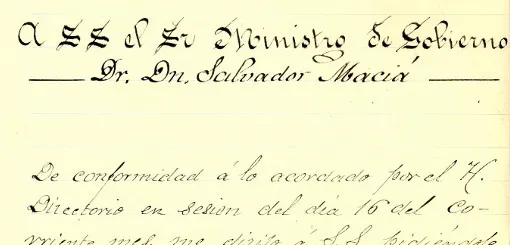 A S S el Sr Ministro de Gobierno
Dr. Dn. Salvador Maciá
De conformidad á lo acordado por el H.
Directorio en sesion del dia 16 del co-
rriente mes, me dirijo á S.S. pidiéndole